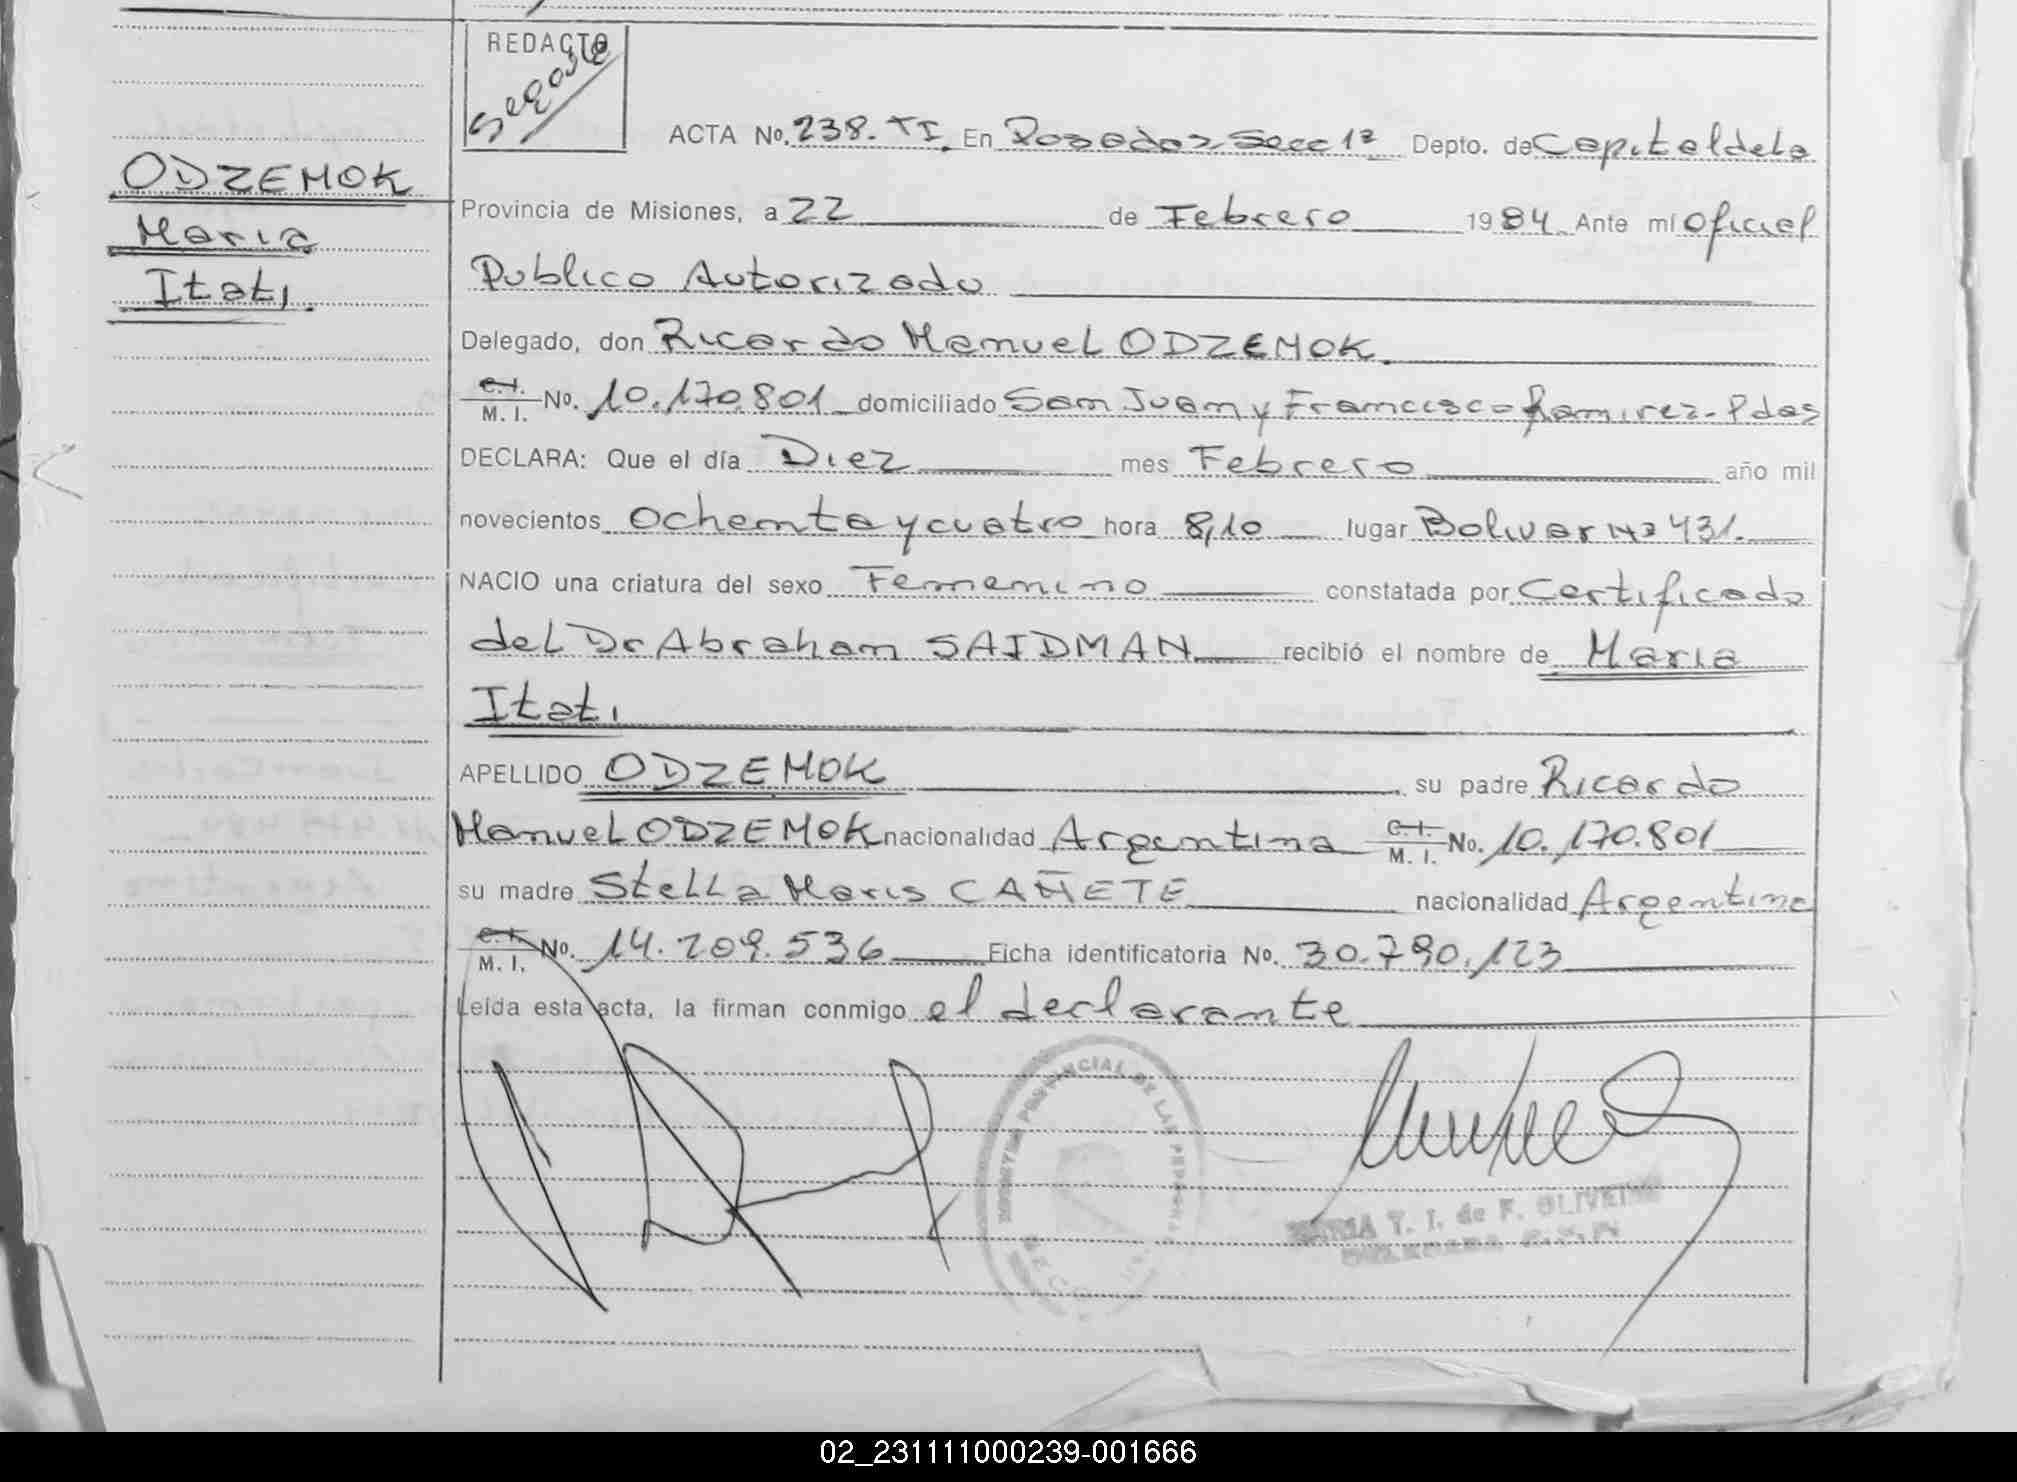 REDACTO
Segosto
ODZEMOK
Maria
Itati.
ACTA No. 238. TI. En Posadas Secc 1ª Depto. de Capital de la
Provincia de Misiones, a 22 de Febrero 1984. Ante mí Oficial
Publico Autorizado
Delegado, don Ricardo Manuel ODZEMOK.
C.I. M. I. No. 10.170.801 domiciliado San Juan y Francisco Ramirez - Pdas
DECLARA: Que el día Diez mes Febrero año mil
novecientos Ochenta y cuatro hora 8,10 lugar Bolivar Nº 431.
NACIO una criatura del sexo Femenino constatada por Certificado
del Dr Abraham SAIDMAN recibió el nombre de Maria
Itati
APELLIDO ODZEMOK su padre Ricardo
Manuel ODZEMOK nacionalidad Argentina C.I. M. I. No. 10.170.801
su madre Stella Maris CAÑETE nacionalidad Argentina
C.I. M. I. No. 14.209.536 Ficha identificatoria No. 30.790.123
Leída esta acta, la firman conmigo el declarante
PROVINCIAL DE LAS PERSONAS
MARIA Y. I. de F. OLIVEIRA
02_231111000239-001666